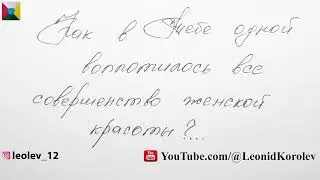 Как в Тебе одной
воплотилось все
совершенство женской
красоты?...
leolev_12
YouTube.com/@LeonidKorolev